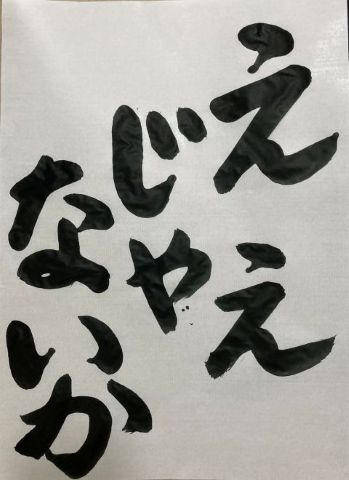 ええ
じゃ
ないか